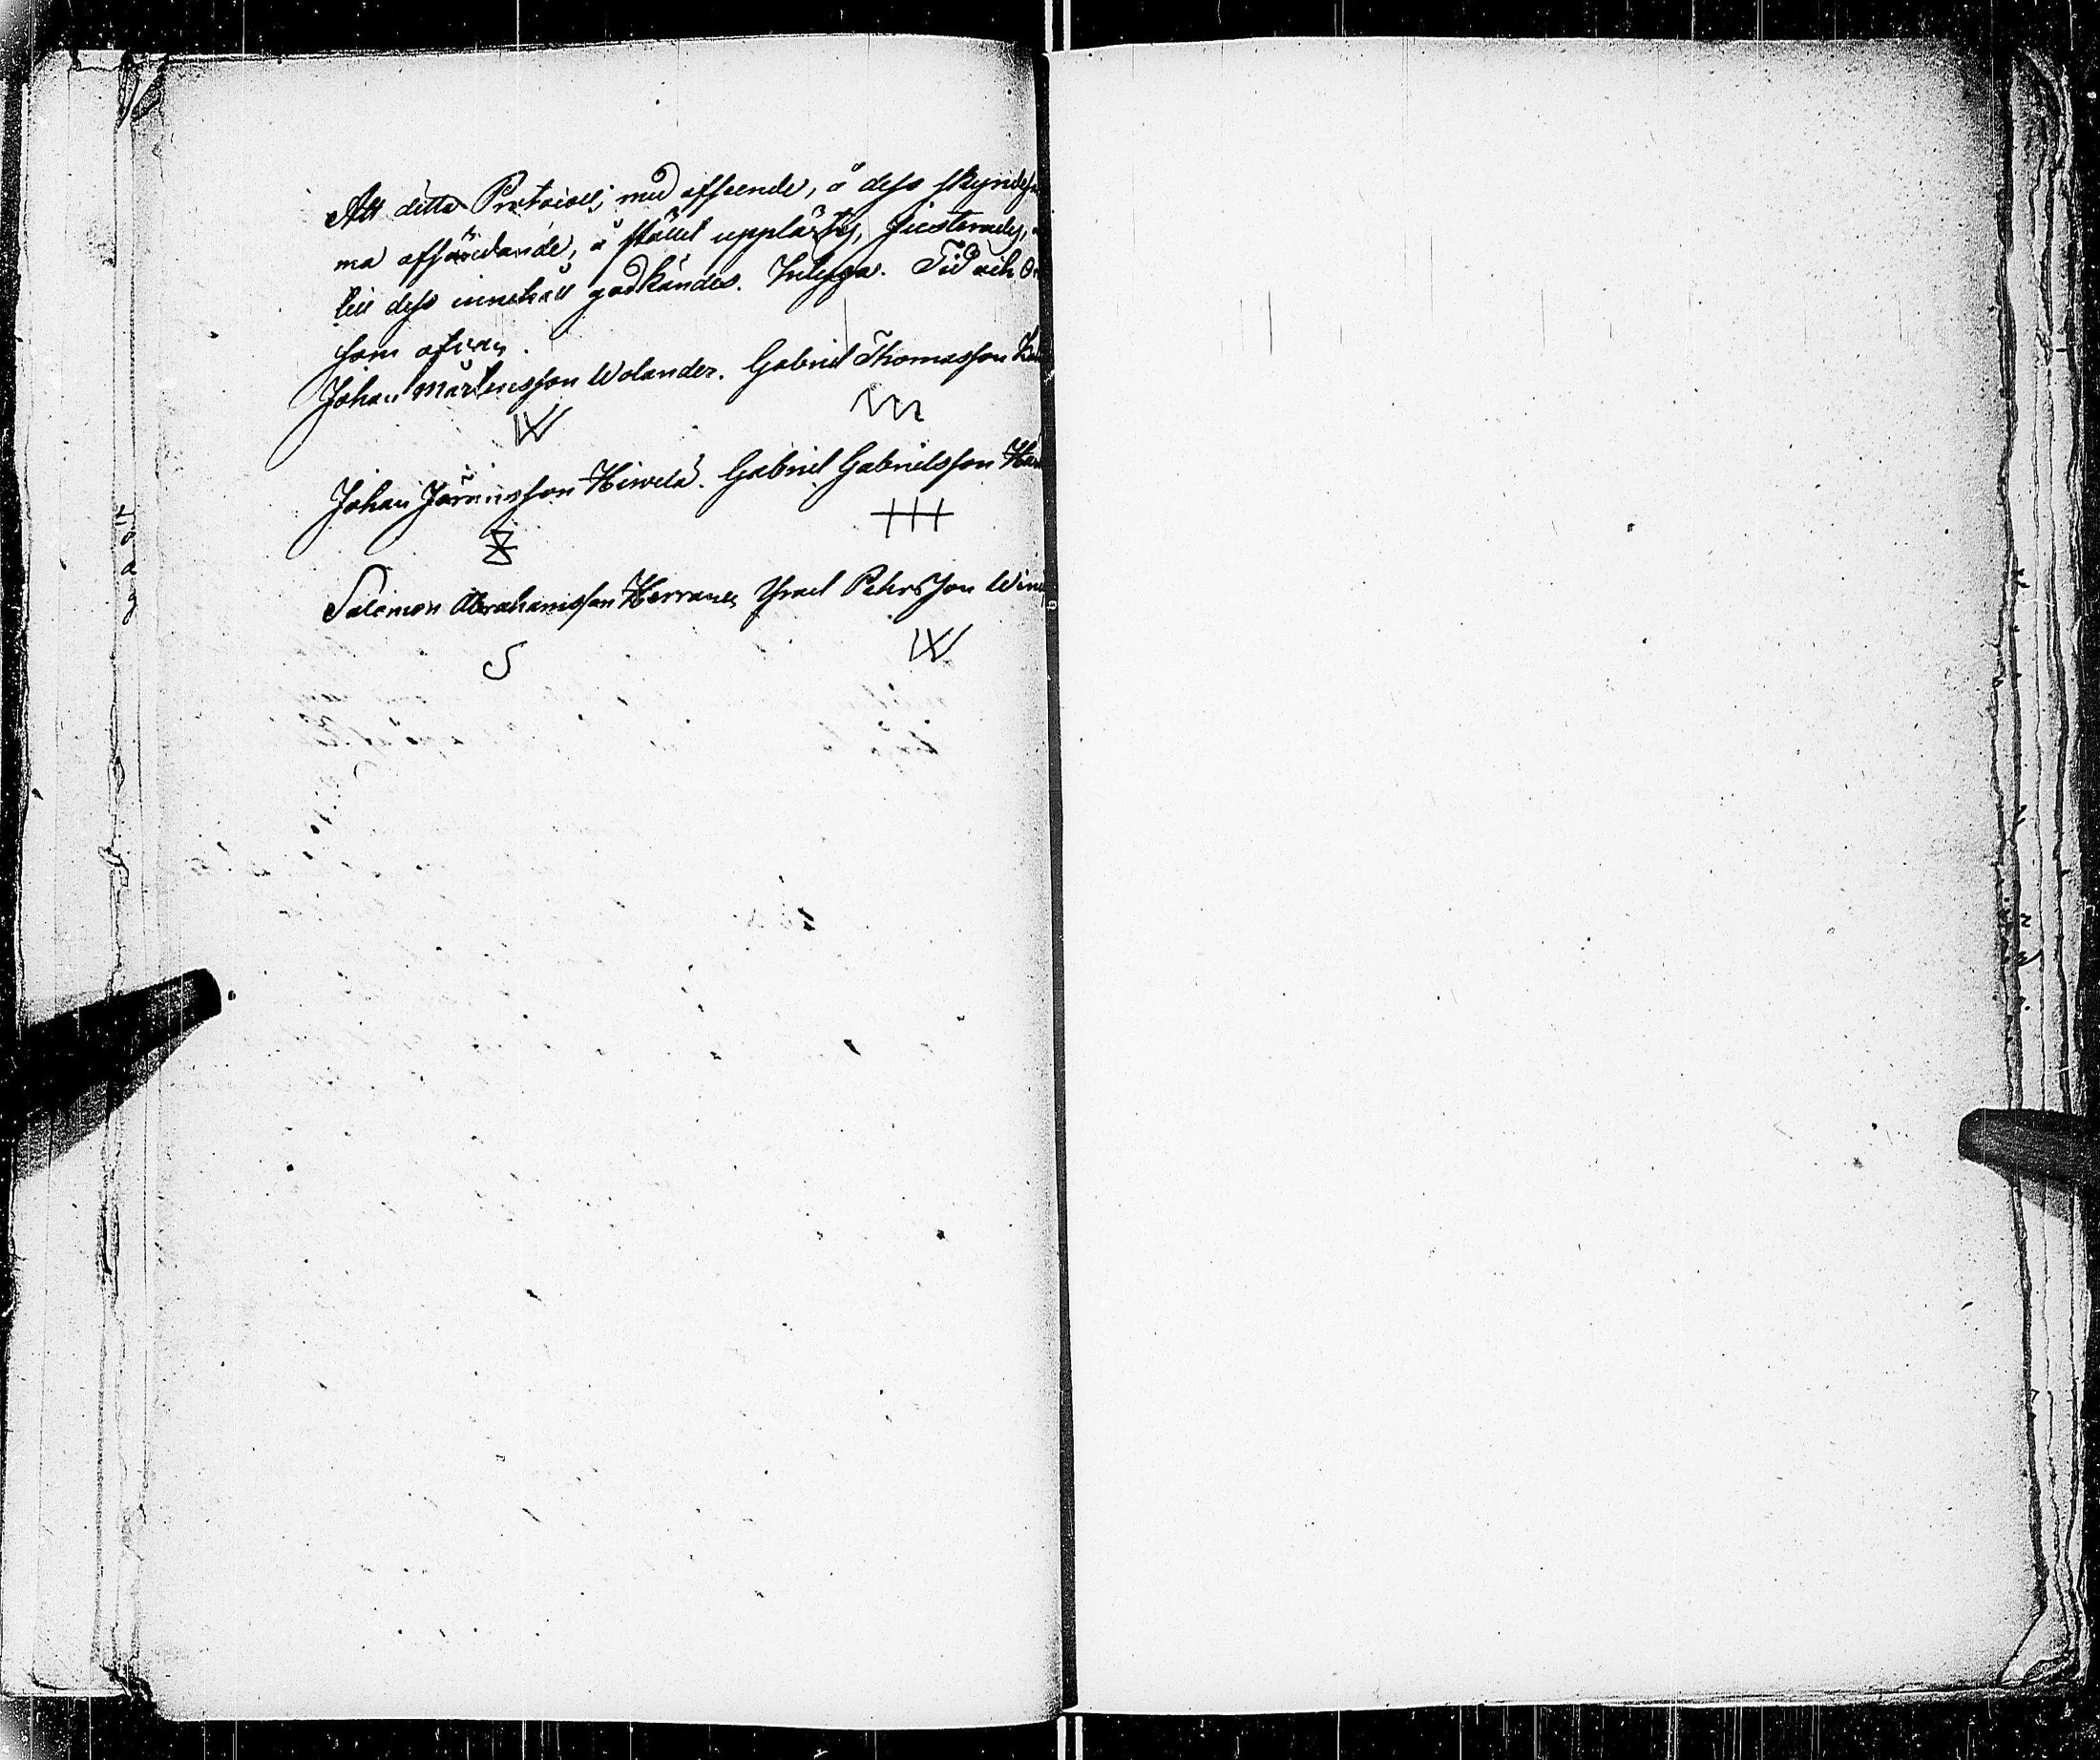 Att detta Protocoll, med afseende, å dess skyndesa
ma afsändande, å stället upplästes, justerades,
till dess innehåll godkändes. Intyga. Tid och Or
som ofvan.
Johan Mårtensson Wolander. Gabriel Thomasson
Johan Jöransson Hiwelä. Gabriel Gabrielsson
Salomon Abrahamsson Herranen Israel Pehrsson